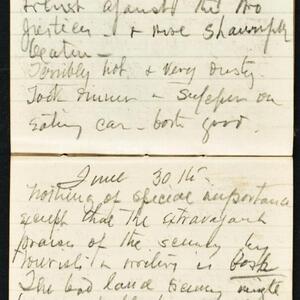 against the two
justices - & were shamefully
beaten -
Terribly hot & very dusty.
Took dinner & supper on
eating car - both good.
June 30th -
Nothing of special importance
except that the extravagant
praises of the scenery by
tourists & writers is bosh
The bad land scenery